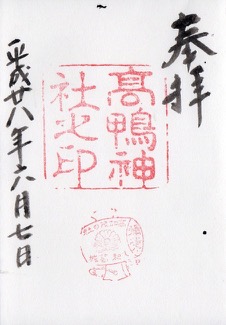 奉拝
高鴨神
社之印
平成廿八年六月七日